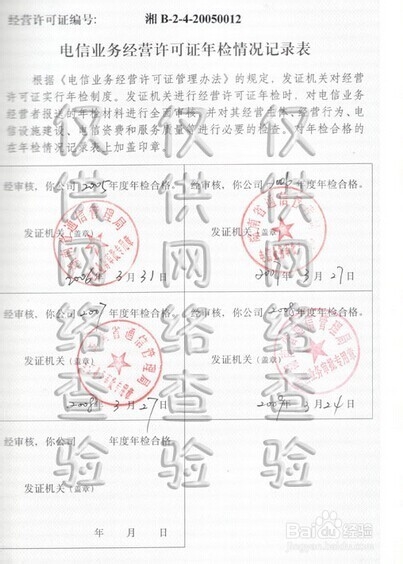 经营许可证编号: 湘 B-2-4-20050012
电信业务经营许可证年检情况记录表
根据《电信业务经营许可证管理办法》的规定，发证机关对经营
许可证实行年检制度。发证机关进行经营许可证年检时，对电信业务
经营者报送的年检材料进行全面审核，并对其经营主体、经营行为、电
信设施建设、电信资费和服务质量等进行必要的检查。对年检合格的
在年检情况记录表上加盖印章。
经审核，你公司 2005 年度年检合格。
发证机关（盖章）
2006年 3月 31日
经审核，你公司 年度年检合格。
发证机关（盖章）
年 3月 27日
经审核，你公司 2007 年度年检合格。
发证机关（盖章）
2008年 3月 27日
经审核，你公司 2008 年度年检合格。
发证机关（盖章）
2009年 3月 24日
经审核，你公司 年度年检合格。
发证机关（盖章）
年 月 日
通信管理局
湖南省通信管
省通信管理局
仅供网络查验
仅供网络查验
Baidu经验
jingyan.baidu.com